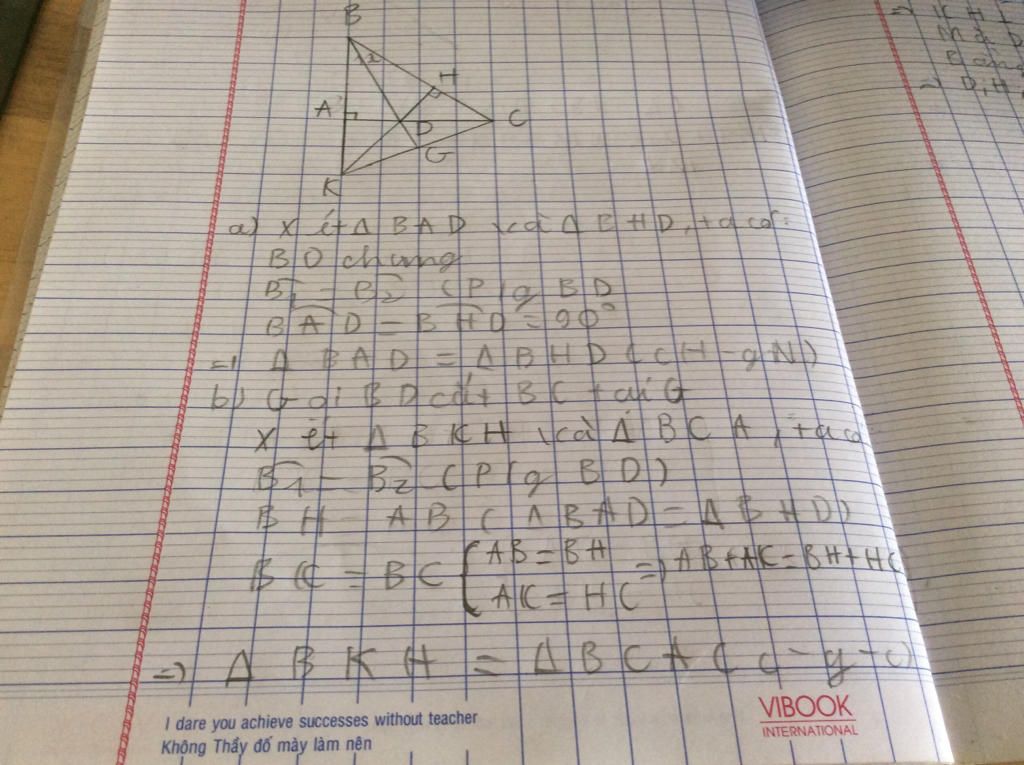 B
H
A
D
C
G
K
a) Xét Δ BAD và Δ BHD, ta có:
BD chung
B1 = B2 (P/g BD
BAD = BHD = 90°
=) Δ BAD = Δ BHD (cH - gN)
b) Gọi BD cắt BC tại G
Xét Δ BKH và Δ BCA, ta có
B1 = B2 (P/g BD)
BH = AB (Δ BAD = Δ BHD)
BK = BC { AB = BH =) AB + AK = BH + HC
AK = HC
=) Δ BKH = Δ BCA (c - g - c)
I dare you achieve successes without teacher
Không Thầy đố mày làm nên
VIBOOK
INTERNATIONAL